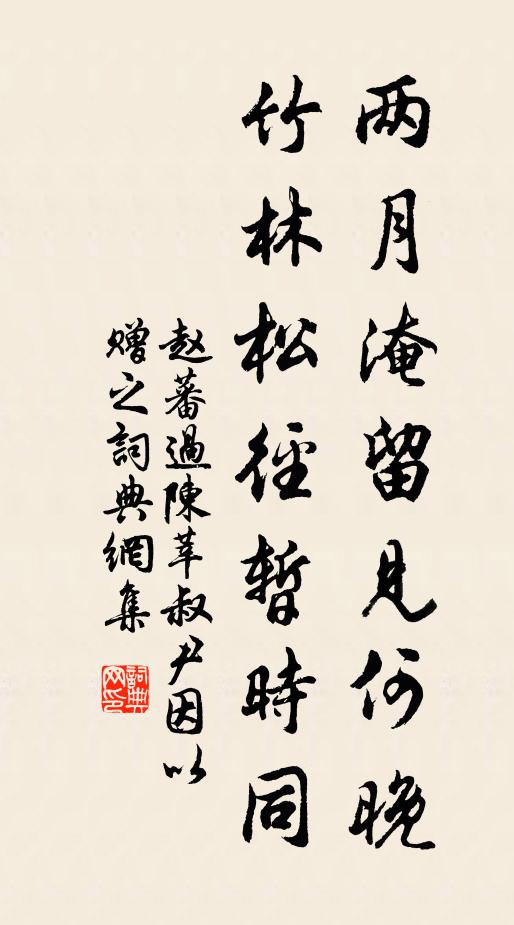 两月淹留見何晚
竹林松径暫時同
赵蕃過陳莘叔尹因以
赠之詞典網集
詞典网印